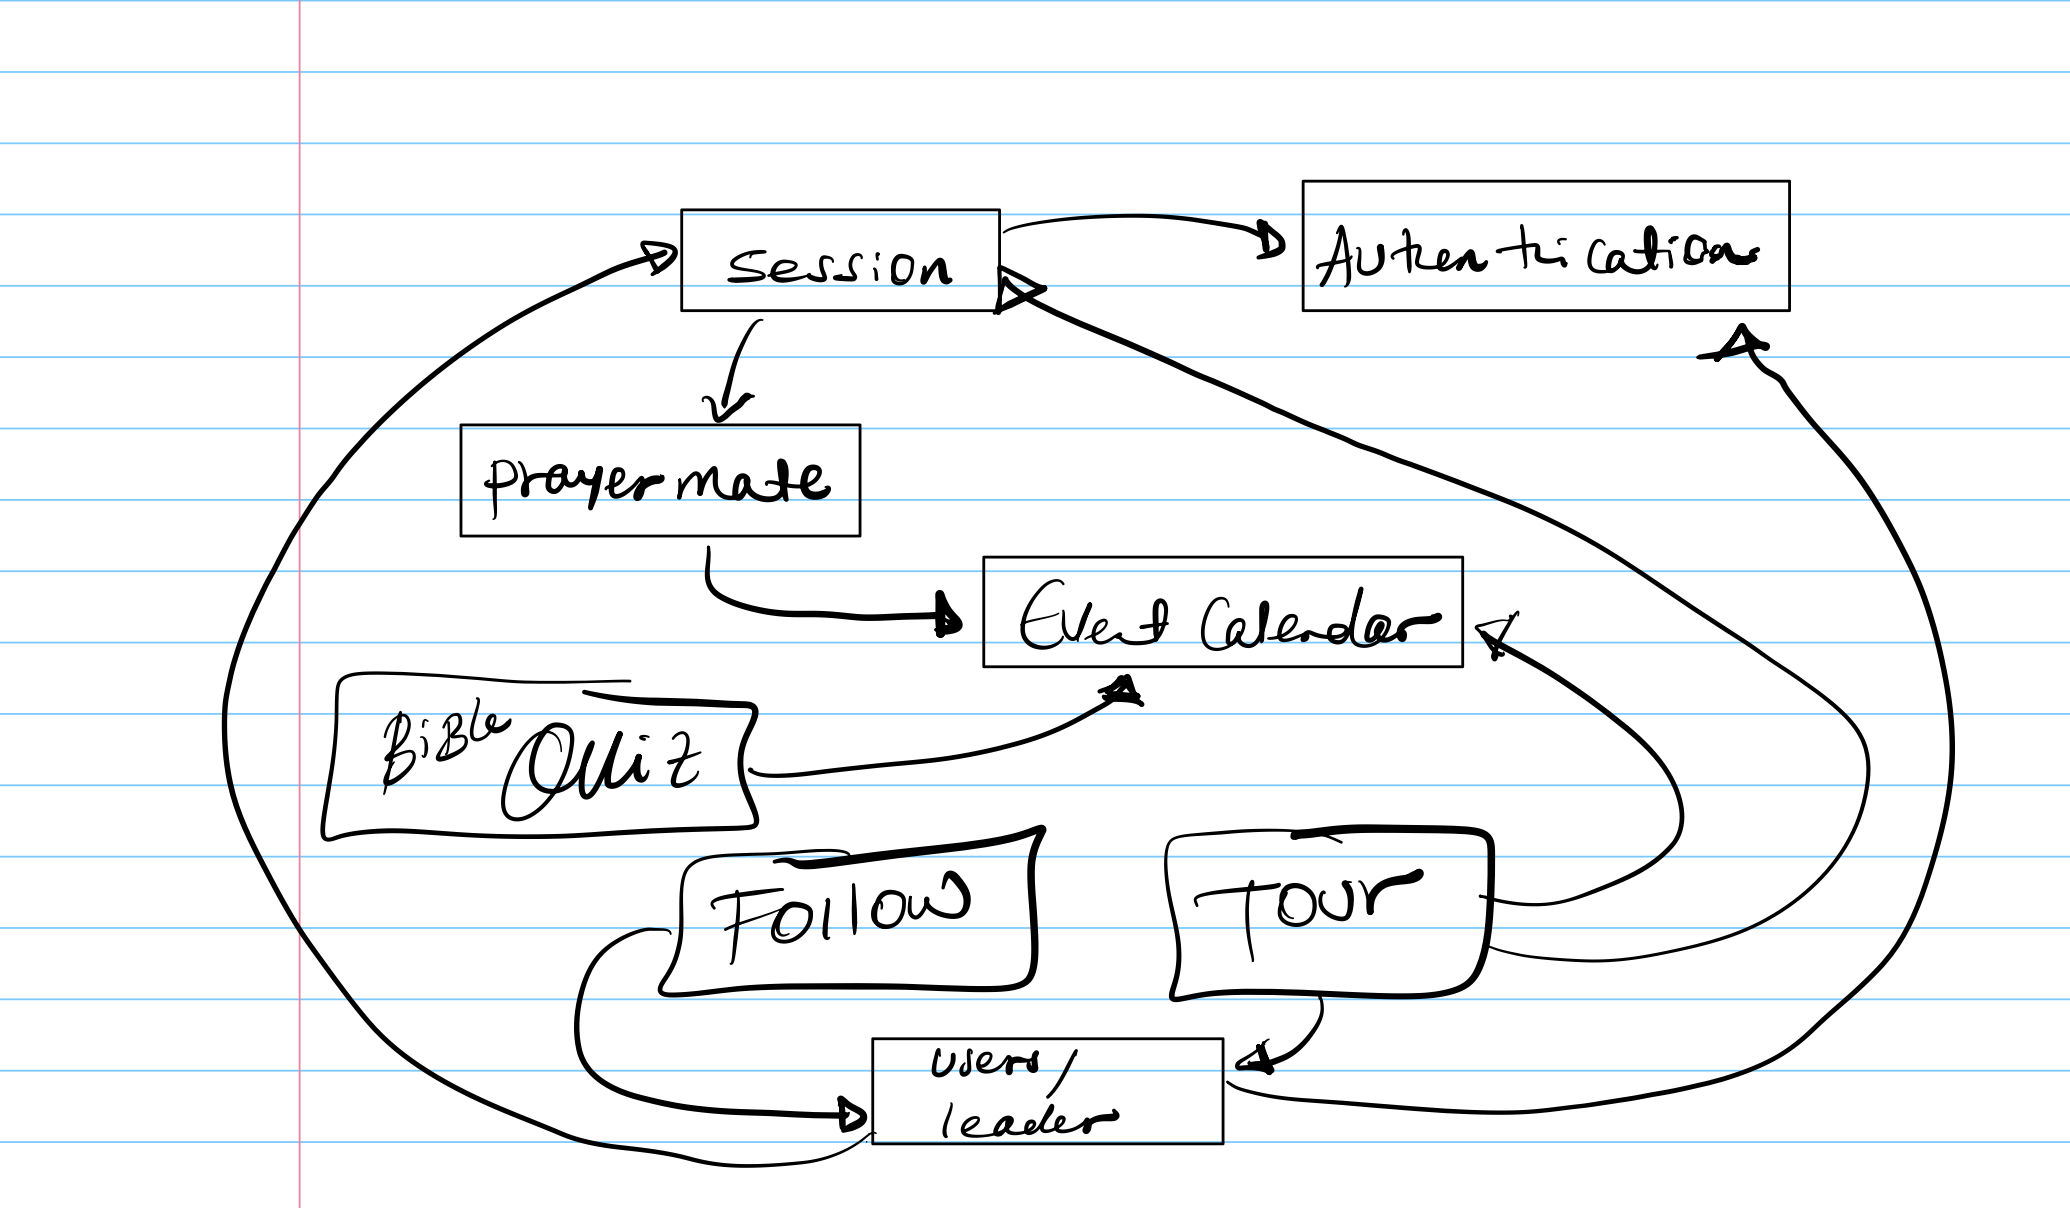 session
Authentication
prayer mate
Event Calendar
BiBle Quiz
Follow
Tour
users/
leader